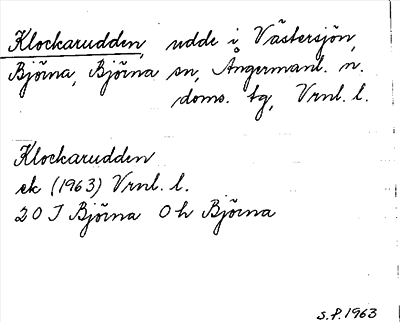 Klockarudden, udde i Västersjön,
Björna, Björna sn, Ångermanl. n.
doms. tg, Vrnl. l.
Klockarudden
ek (1963) Vrnl. l.
20 I Björna 0 h Björna
S.P. 1963